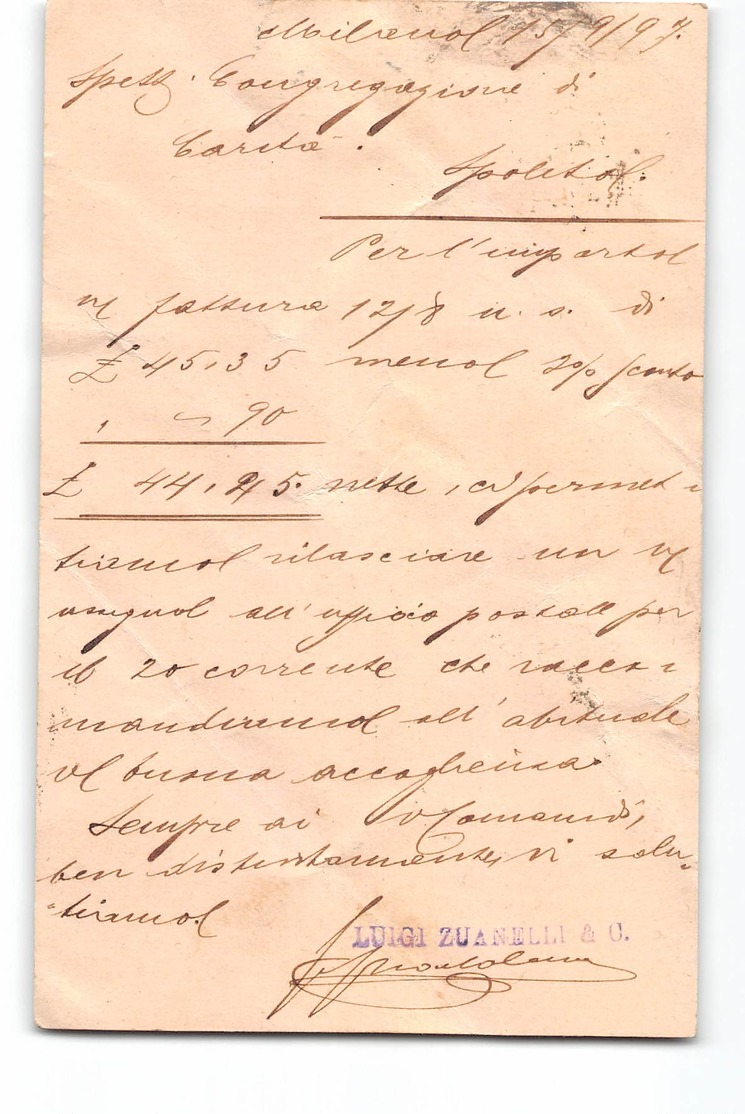 Milano 15/9/97.
Spett. Congregazione di
Carità.
Spoleto.
Per l'importo
vs fattura 12/8 u. s. di
£ 45,35 meno 2% sconto
, " 90
£ 44,45. nette, ci permet
tiamo rilasciare un vs
assegno all'ufficio postale per
il 20 corrente che racco
mandiamo all'abituale
vs buona accoglienza.
Sempre ai vs Comandi,
ben distintamente, vi salu-
tiamo
LUIGI ZUANELLI & C.